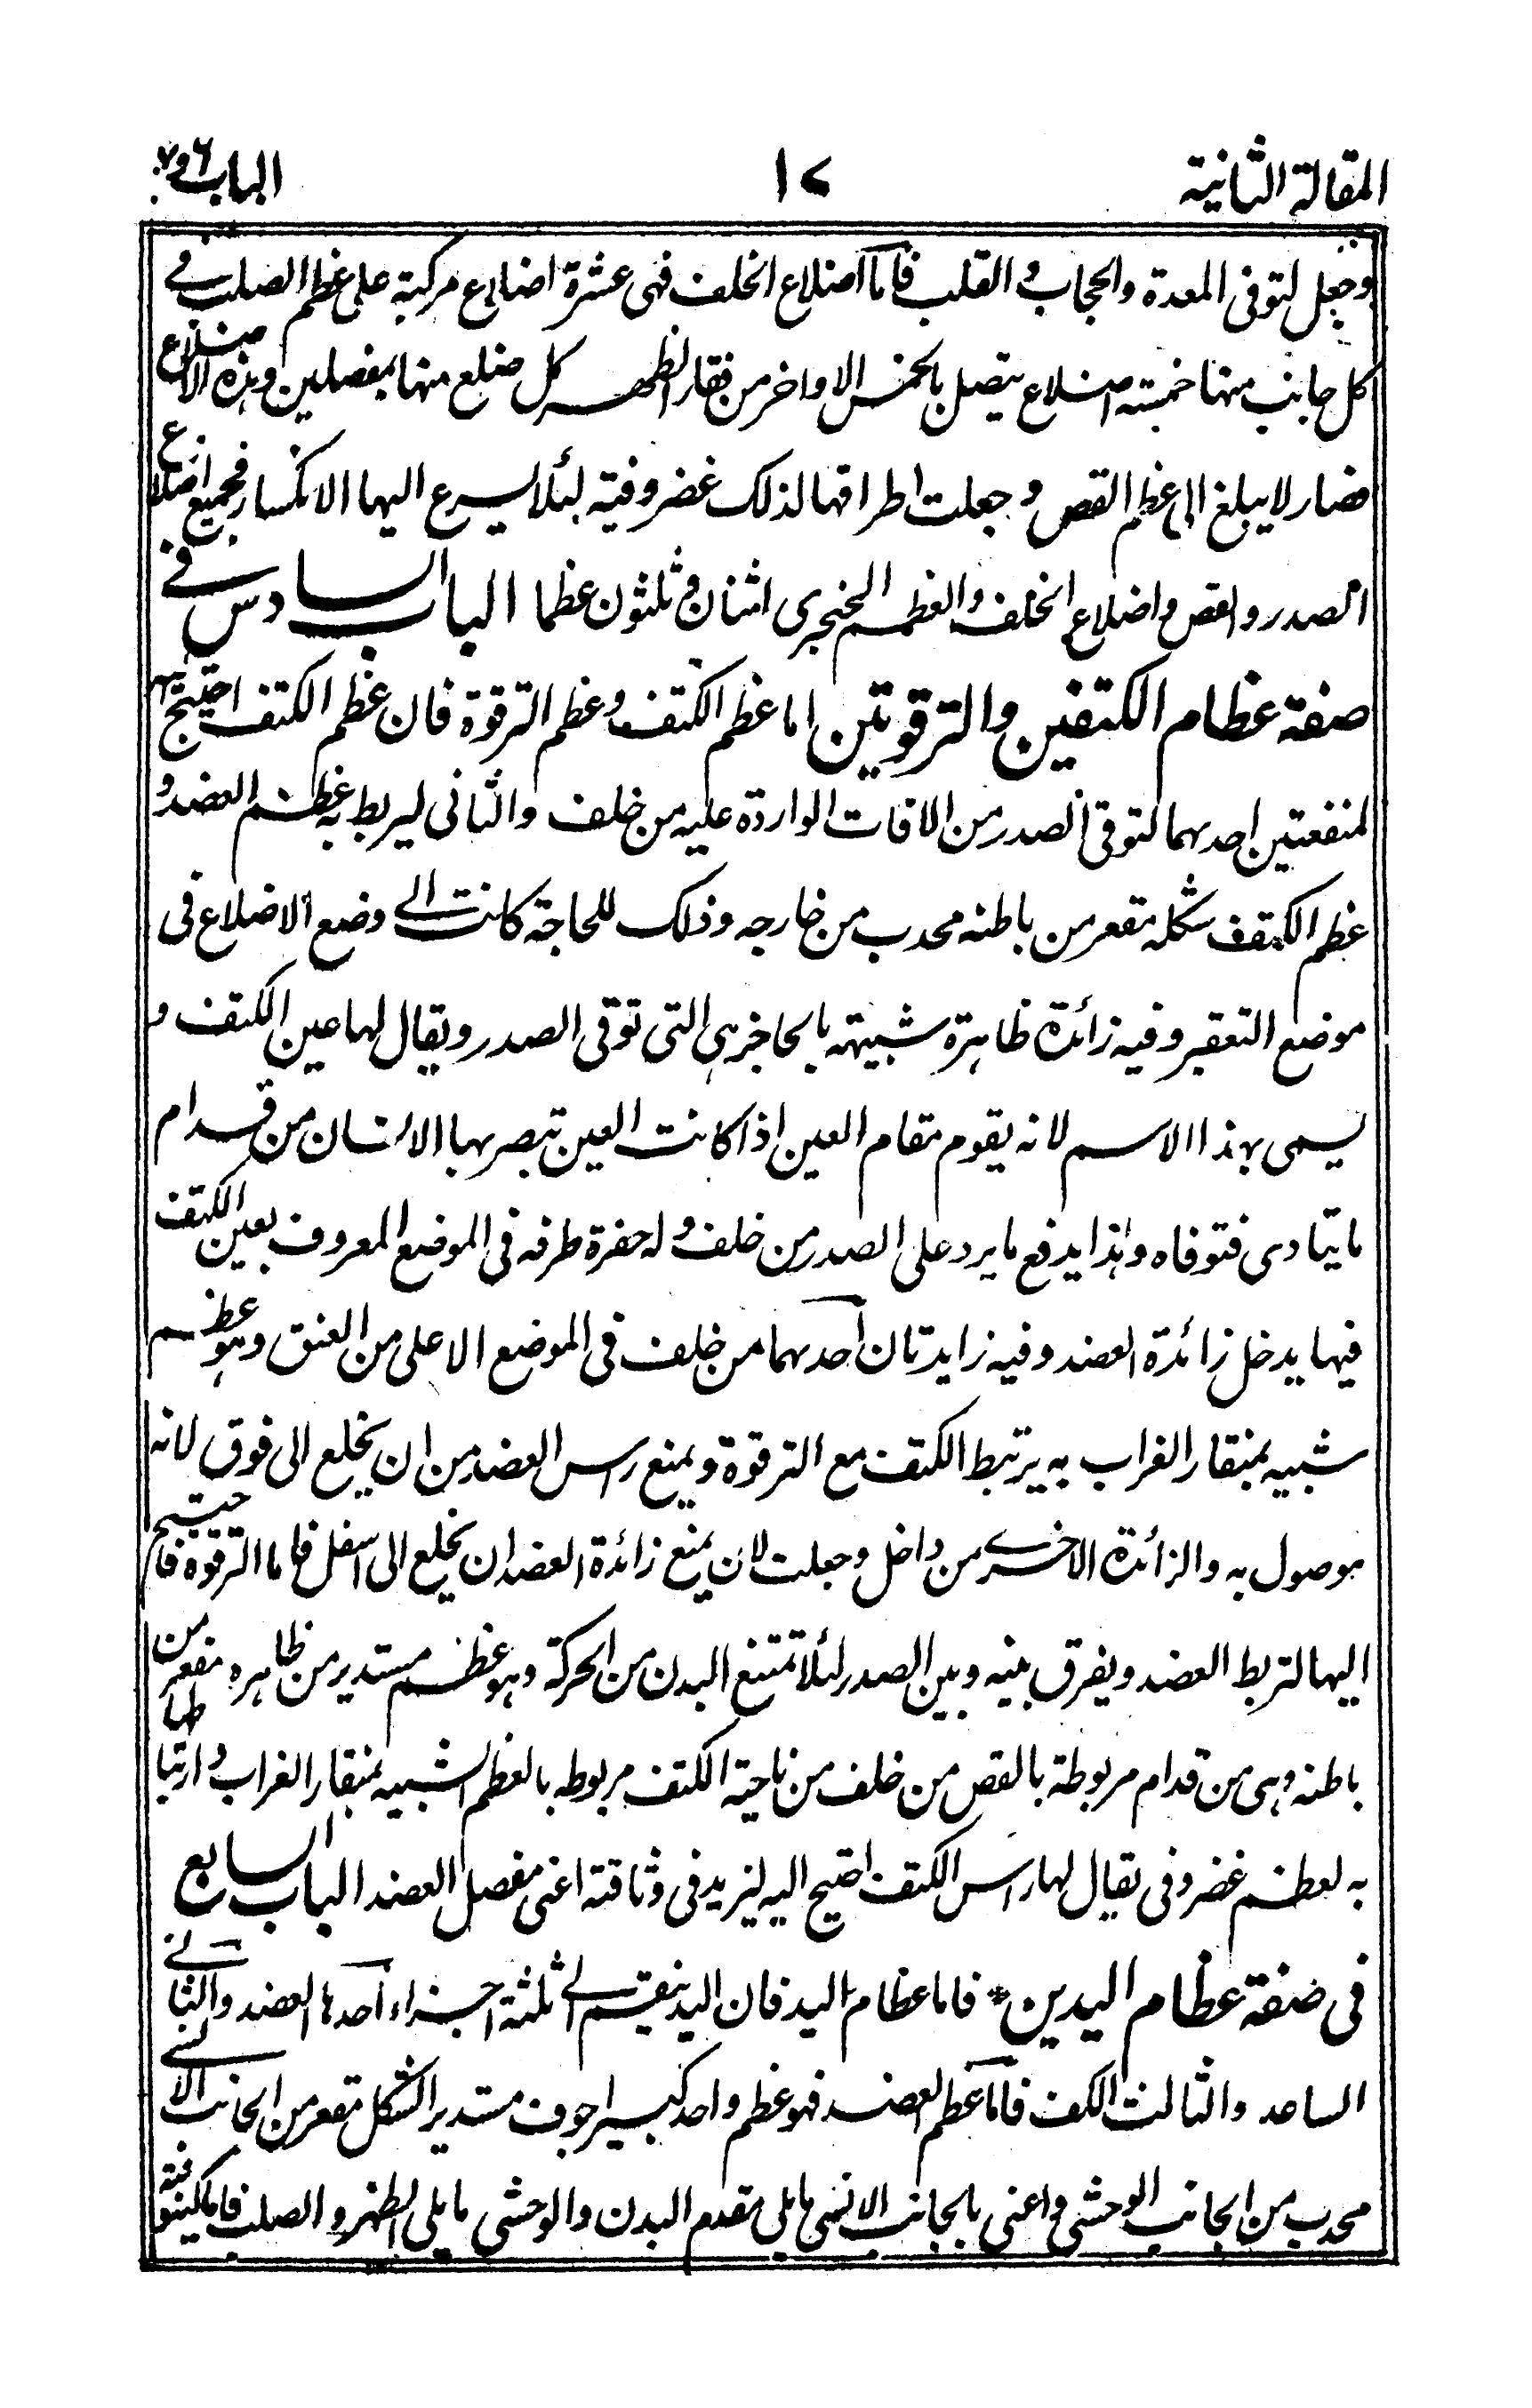 المقالة الثانية ١٧ الباب ٦ و ٧
وجعل لتوقى المعدة والحجاب و القلب فاما اضلاع الخلف فهى عشرة اضلاع مركبة على عظم الصلب فى
كل جانب منها خمسة اضلاع يتصل بالخمس الاواخر من فقار الظهر كل ضلع منها بمفصلين وهذه الاضلاع
قصار لا يبلغ الى عظم القص و جعلت اطرافها لذلك غضروفية لئلا يسرع اليها الانكسار فجميع اضلاع
الصدر والقص و اضلاع الخلف والعظم الخنجرى اثنان و ثلثون عظما الباب السادس فى
صفة عظام الكتفين والترقوتين اما عظم الكتف و عظم الترقوة فان عظم الكتف احتيج
لمنفعتين احدهما لتوقى الصدر من الافات الواردة عليه من خلف والثانى ليربط به عظم العضد و
عظم الكتف شكله مقعر من باطنه محدب من خارجه وذلك للحاجة كانت الى وضع الاضلاع فى
موضع التقعير وفيه زائدة ظاهرة شبيهة بالحاجز هى التى توقى الصدر ويقال لها عين الكتف و
يسمى بهذا الاسم لانه يقوم مقام العين اذا كانت العين تبصر بها الانسان من قدام
ما يتادى فتوقاه وهذا يدفع ما يرد على الصدر من خلف و له حفرة طرفه فى الموضع المعروف بعين الكتف
فيها يدخل زائدة العضد وفيه زايدتان احدهما من خلف فى الموضع الاعلى من العنق وهو عظم
شبيه بمنقار الغراب به يرتبط الكتف مع الترقوة و يمنع راس العضد من ان يخلع الى فوق لانه
موصول به والزائدة الاخرى من داخل و جعلت لان يمنع زائدة العضد ان يخلع الى اسفل فاما الترقوة فاحتيج
اليها لتربط العضد و يفرق بينه و بين الصدر لئلا تمتنع البدن من الحركة وهو عظم مستدير من ظاهره مقعر من
باطنه وهى من قدام مربوطة بالقص من خلف من ناحية الكتف مربوطه بالعظم الشبيه بمنقار الغراب و ارتباطها
به لعظم غضروفى يقال لها راس الكتف احتيج اليه ليزيد فى وثاقته اعنى مفصل العضد الباب السابع
فى صفة عظام اليدين * فاما عظام اليد فان اليد ينقسم الى ثلثة اجزاء احدها العضد والثانى
الساعد والثالث الكف فاما عظم العضد فهو عظم واحد كبير اجوف مستدير الشكل مقعر من الجانب الانسى
محدب من الجانب الوحشى و اعنى بالجانب الانسى ما يلى مقدم البدن والوحشى ما يلى الظهر و الصلب فاما كينونته